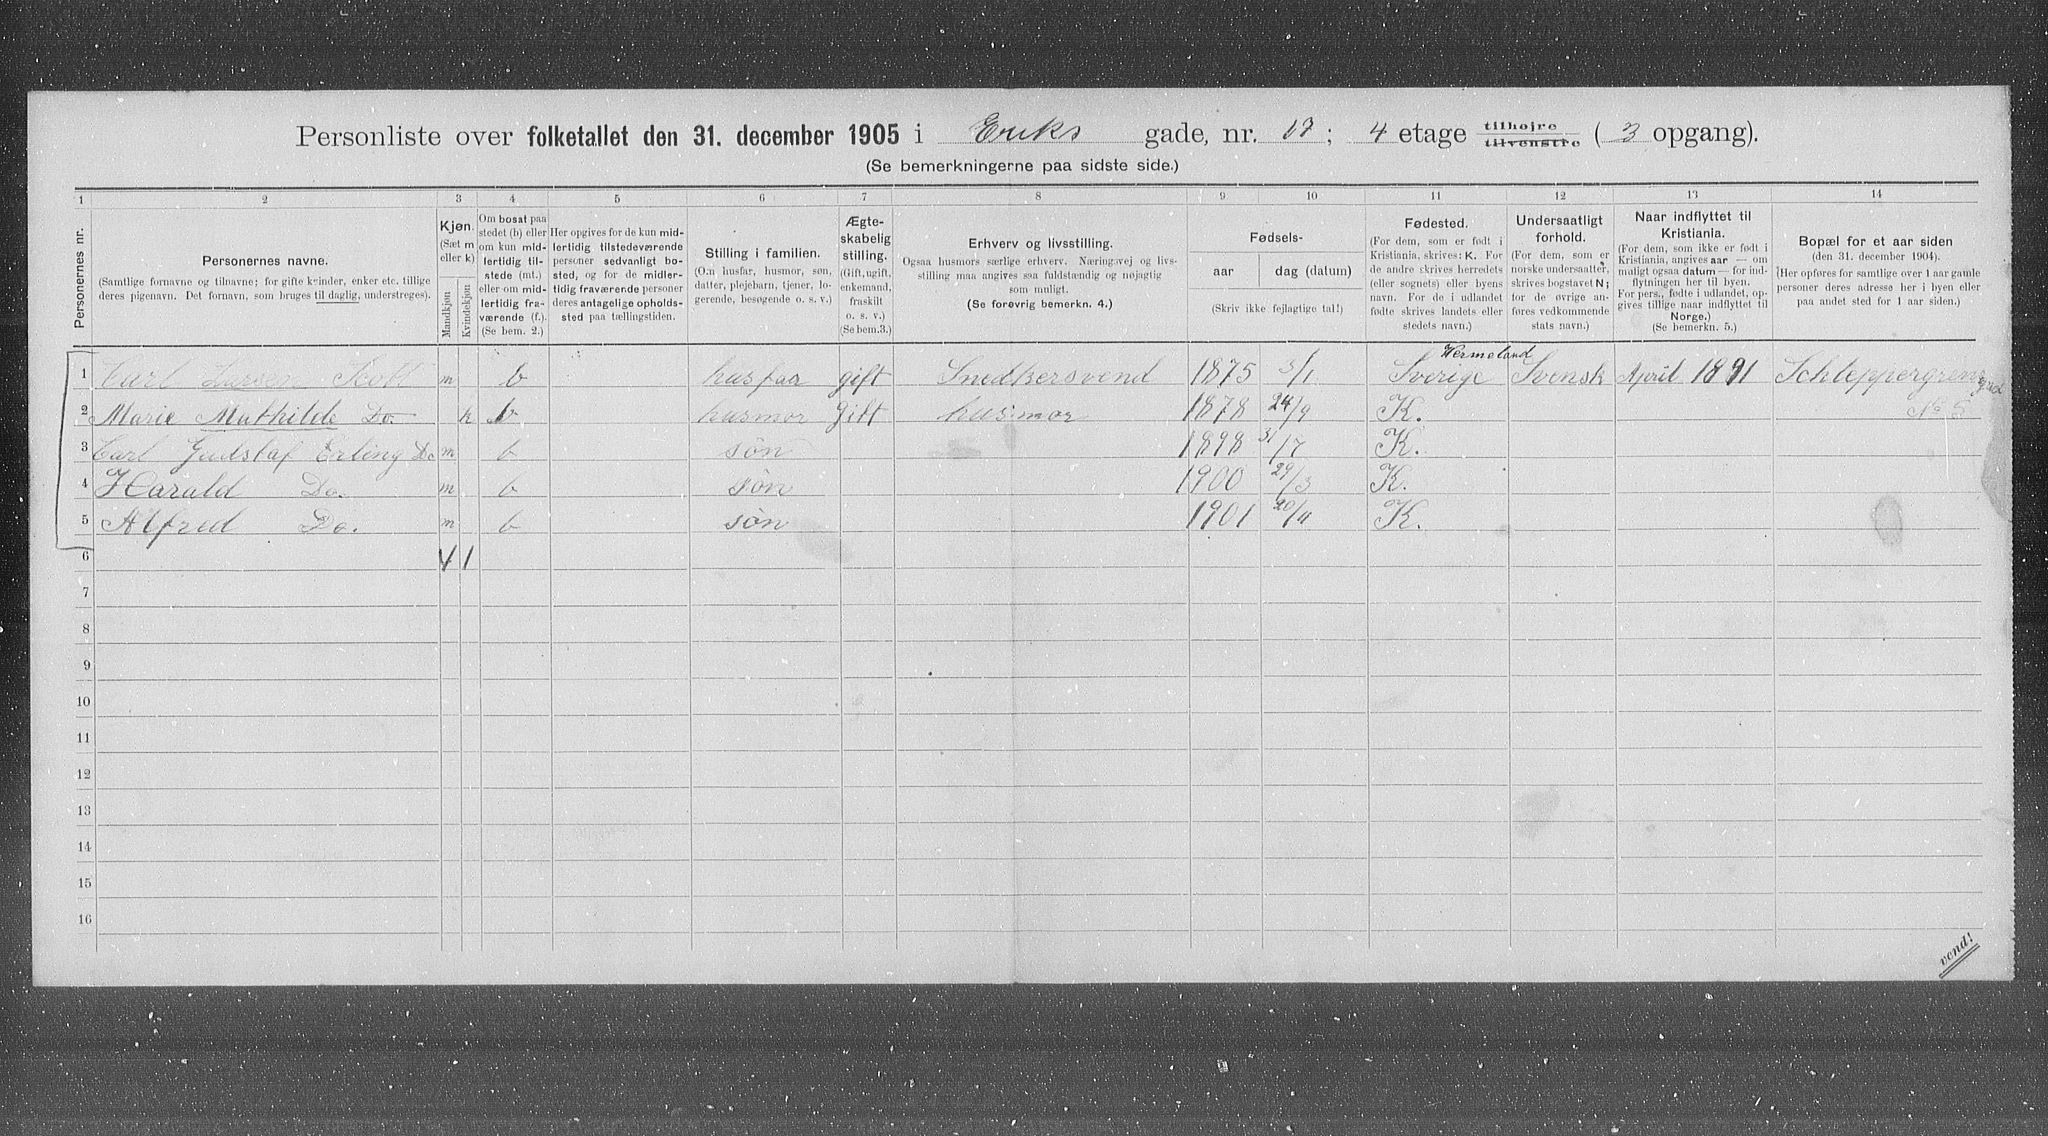 Personliste over folketallet den 31. december 1905 i Eriks gade, nr. 17; 4 etage tilhøjre tilvenstre (3 opgang).
(Se bemerkningerne paa sidste side.)
1 2 3 4 5 6 7 8 9 10 11 12 13 14
Personernes nr.
Personernes navne.
(Samtlige fornavne og tilnavne; for gifte kvinder, enker etc. tillige deres pigenavn. Det fornavn, som bruges til daglig, understreges).
Kjøn.
(Sæt m eller k)
Mandkjøn
Kvindekjøn
Om bosat paa stedet (b) eller om kun midlertidig tilstede (mt.) eller om midlertidig fraværende (f.). (Se bem. 2.)
Her opgives for de kun midlertidig tilstedeværende personer sedvanligt bosted, og for de midlertidig fraværende personer deres antagelige opholdssted paa tællingstiden.
Stilling i familien.
(O: husfar, husmor, søn, datter, plejebarn, tjener, logerende, besøgende o. s. v.)
Ægteskabelig stilling.
(Gift, ugift, enkemand, fraskilt o. s. v.) (Se bem. 3.)
Erhverv og livsstilling.
Ogsaa husmors særlige erhverv. Næringsvej og livsstilling maa angives saa fuldstændig og nøjagtig som muligt.
(Se forøvrig bemerkn. 4.)
Fødsels-
aar
dag (datum)
(Skriv ikke fejlagtige tal!)
Fødested.
(For dem, som er født i Kristiania, skrives: K. For de andre skrives herredets (eller sognets) eller byens navn. For de i udlandet fødte skrives landets eller stedets navn.)
Undersaatligt forhold.
(For dem, som er norske undersaatter, skrives bogstavet N; for de øvrige anføres vedkommende stats navn.)
Naar indflyttet til Kristiania.
(For dem, som ikke er født i Kristiania, angives aar — om muligt ogsaa datum — for indflytningen her til byen. For pers., fødte i udlandet, opgives tillige naar indflyttet til Norge.)
(Se bemerkn. 5.)
Bopæl for et aar siden
(den 31. december 1904).
(Her opføres for samtlige over 1 aar gamle personer deres adresse her i byen eller paa andet sted for 1 aar siden.)
1 Carl Larsen Scott m b husfaa gift Snedkersvend 1875 3/1 Vermeland Sverige Svensk April 1891 Schleppergrens gad
2 Marie Mathilde Do. k b husmor gift husmor 1878 24/9 K. No 5
3 Carl Gudstaf Erling Do m b søn 1898 31/7 K.
4 Harald Do. m b søn 1900 29/3 K.
5 Alfred Do. m b søn 1901 20/11 K.
6 4 1
7
8
9
10
11
12
13
14
15
16
vend!